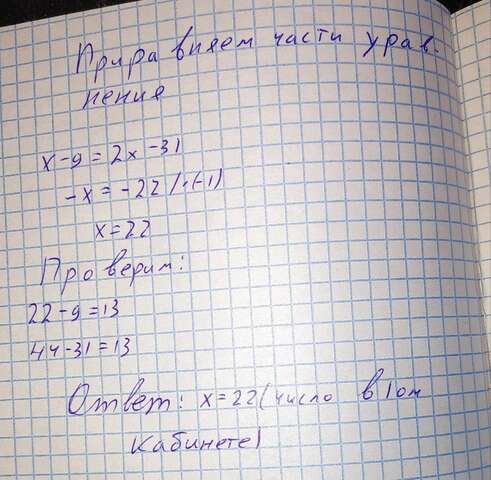 Приравняем части урав-
нения
x-9=2x-31
-x=-22 /·(-1)
x=22
Проверим:
22-9=13
44-31=13
Ответ: x=22(число в 1ом
кабинете)